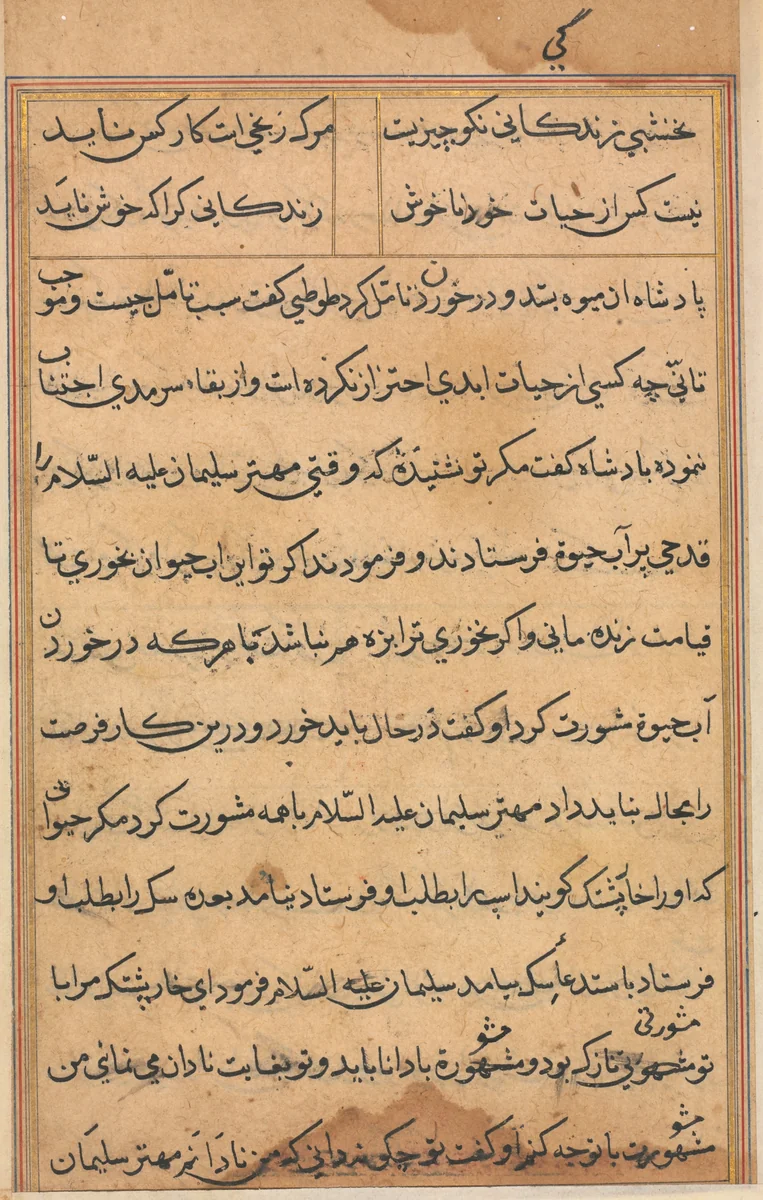 کي
نخشبي زندکاني نکو چيزيست مرک زبخي است کار کس نايد
نيست کس از حيات خود ناخوش زندکاني کرا که خوش نايد
پادشاه ان ميوه بستد و در خوردن تامّل کرد طوطي کفت سبب تامّل چيست و موجب
تانّي چه کسي از حيات ابدي احتراز نکرده است و از بقاء سرمدي اجتناب
ننموده بادشاه کفت مکر تو نشنيدۀ که وقتي مهتر سليمان عليه السّلام را
قدحي پر آب حيوة فرستادند و فرمودند اکر تو اين اب حيوان بخوري تا
قيامت زنده ماني و اکر نخوري ترا بزه هم نباشد با هرکه در خوردن
آب حيوة مشورت کرد او کفت درحال بايد خورد و درين کار فرصت
را مجال نبايد داد مهتر سليمان عليه السّلام با همه مشورت کرد مکر حيواني
که او را خارپشتک کويند اسپ را بطلب او فرستاد نيامد بعده سک را بطلب او
فرستاد باستدعاء سک بيامد سليمان عليه السّلام فرمود اي خارپشتک مرا با
تو مشورتي نازک بود و مشورة با دانا بايد و تو بغايت نادان مي نمائي من
مشورت با تو چه کنم او کفت تو چکونه داني که من نادانم مهتر سليمان